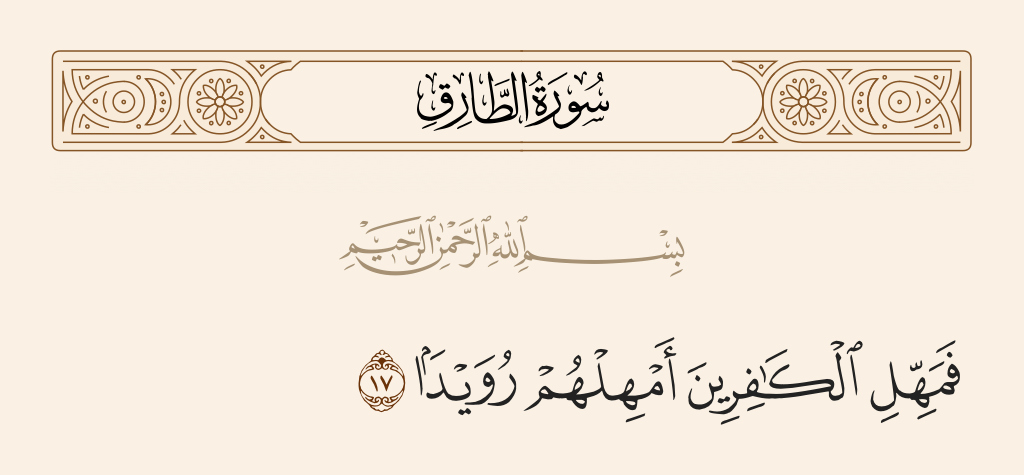 سُورَةُ الطَّارِقِ
بِسْمِ ٱللَّهِ ٱلرَّحْمَٰنِ ٱلرَّحِيمِ
فَمَهِّلِ ٱلْكَـٰفِرِينَ أَمْهِلْهُمْ رُوَيْدًۢا ١٧